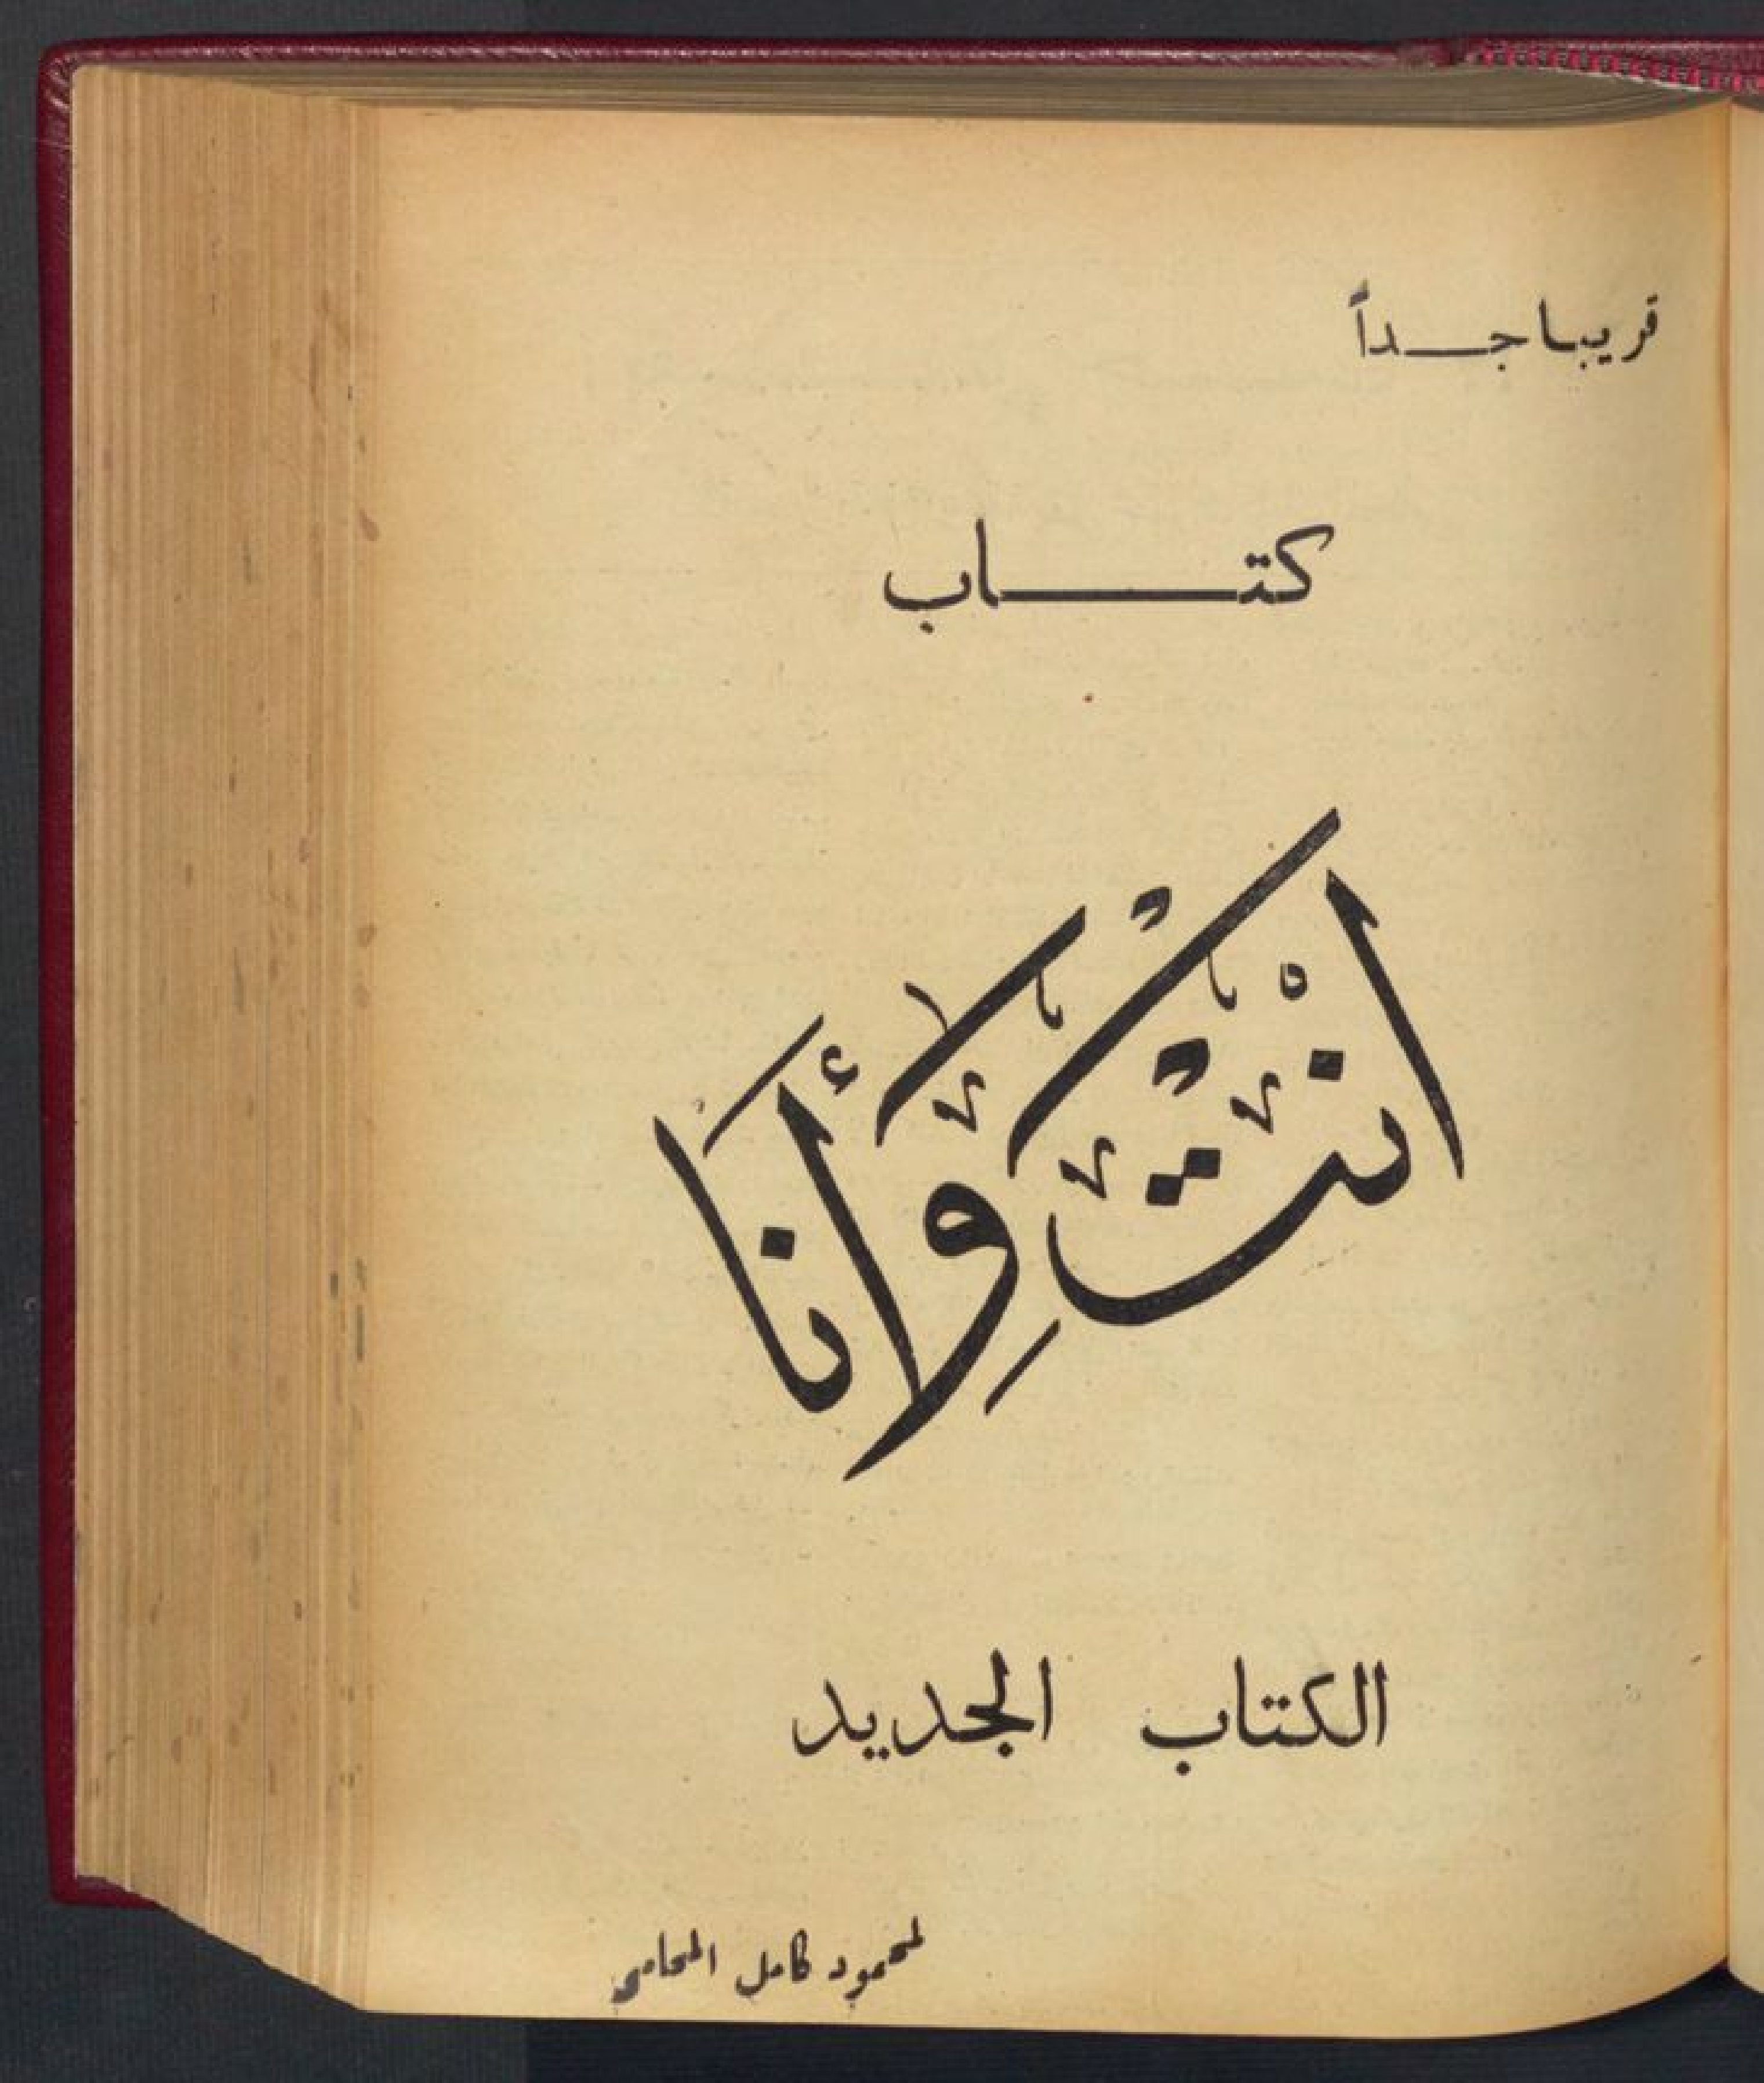 قريبا جداً
كتاب
انْتِ وَأَنَا
الكتاب الجديد
لمحمود كامل المحامى